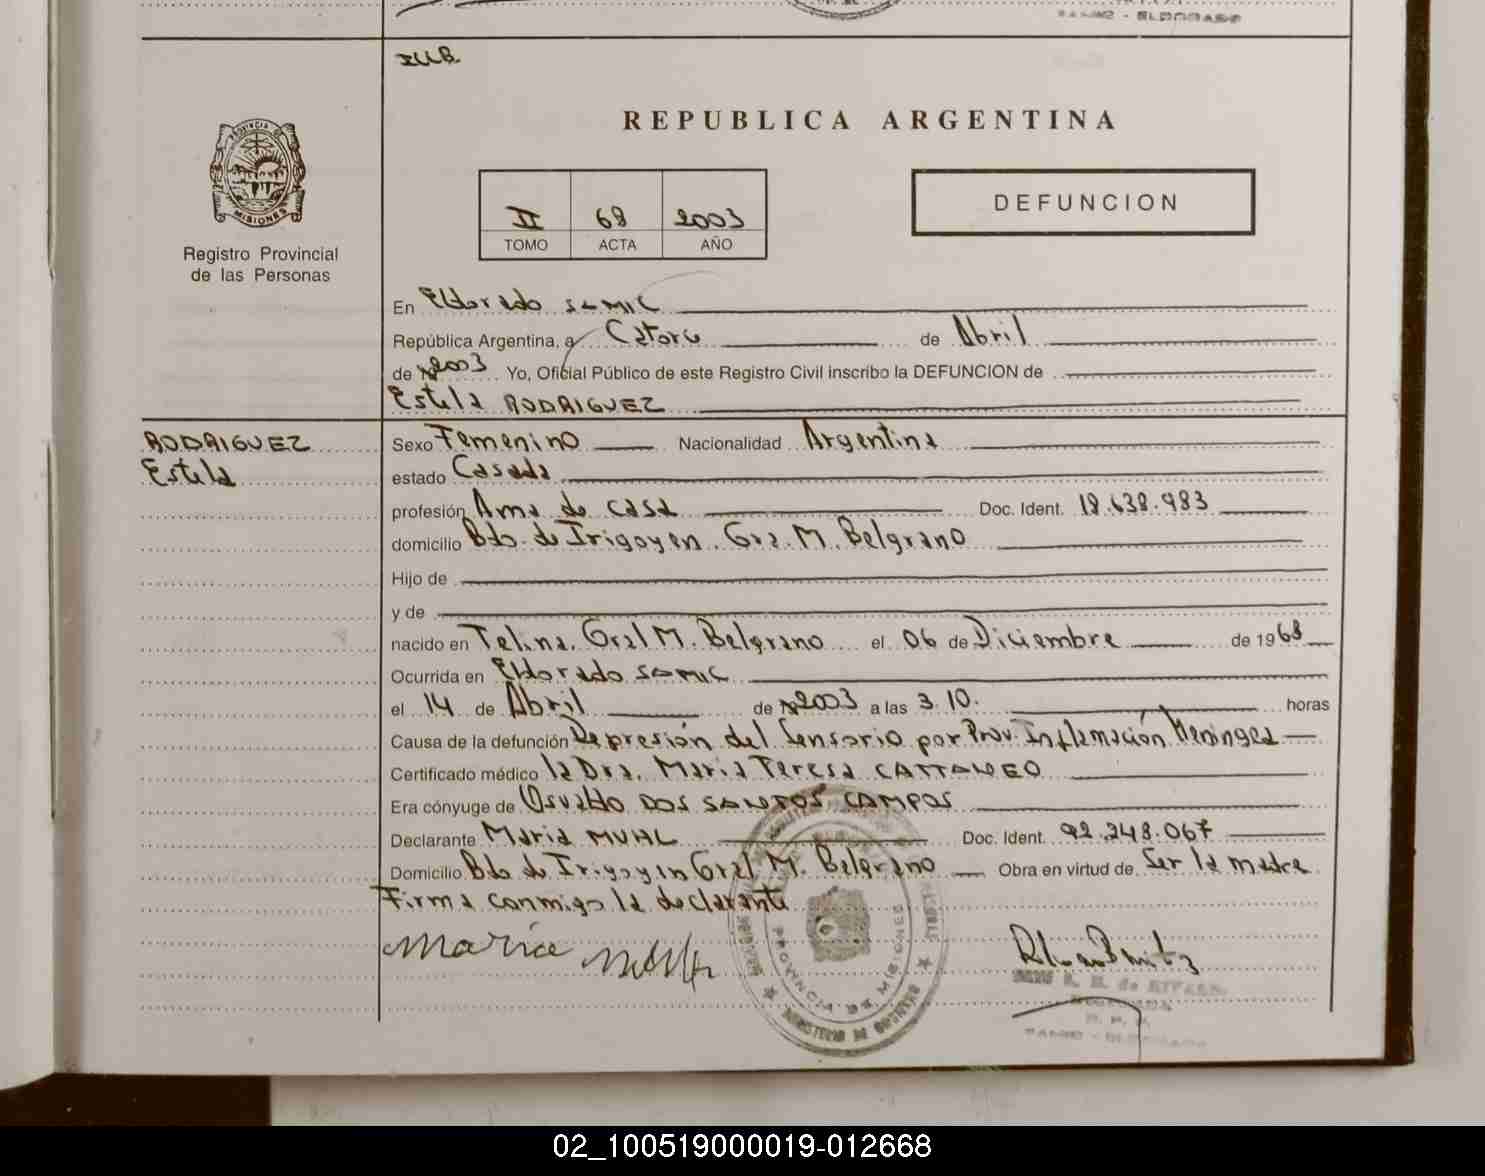 SAMIC - ELDORADO
REPUBLICA ARGENTINA
PROVINCIA DE
MISIONES
Registro Provincial
de las Personas
II 68 2003
TOMO ACTA AÑO
DEFUNCION
En Eldorado SAMIC
República Argentina, a Catorce de Abril
de 2003 Yo, Oficial Público de este Registro Civil inscribo la DEFUNCION de
Estela RODRIGUEZ
RODRIGUEZ
Estela
Sexo Femenino Nacionalidad Argentina
estado Casada
profesión Ama de casa Doc. Ident. 18.638.983
domicilio Bdo. de Irigoyen. Gra. M. Belgrano
Hijo de
y de
nacido en Gral M. Belgrano el 06 de Diciembre de 1968
Ocurrida en Eldorado SAMIC
el 14 de Abril de 2003 a las 3 10. horas
Causa de la defunción Depresión del Sensorio por Prov. Inflamación Meningea
Certificado médico la Dra. Maria Teresa CATTANEO
Era cónyuge de Osvaldo DOS SANTOS CAMPOS
Declarante Maria MUHL Doc. Ident. 92.248.067
Domicilio Bdo de Irigoyen Gral M. Belgrano Obra en virtud de Ser la madre
Firma conmigo la declarante
Maria
PROVINCIA DE MISIONES
MINISTERIO DE GOBIERNO
de RIVERO
SAMIC - ELDORADO
02_100519000019-012668